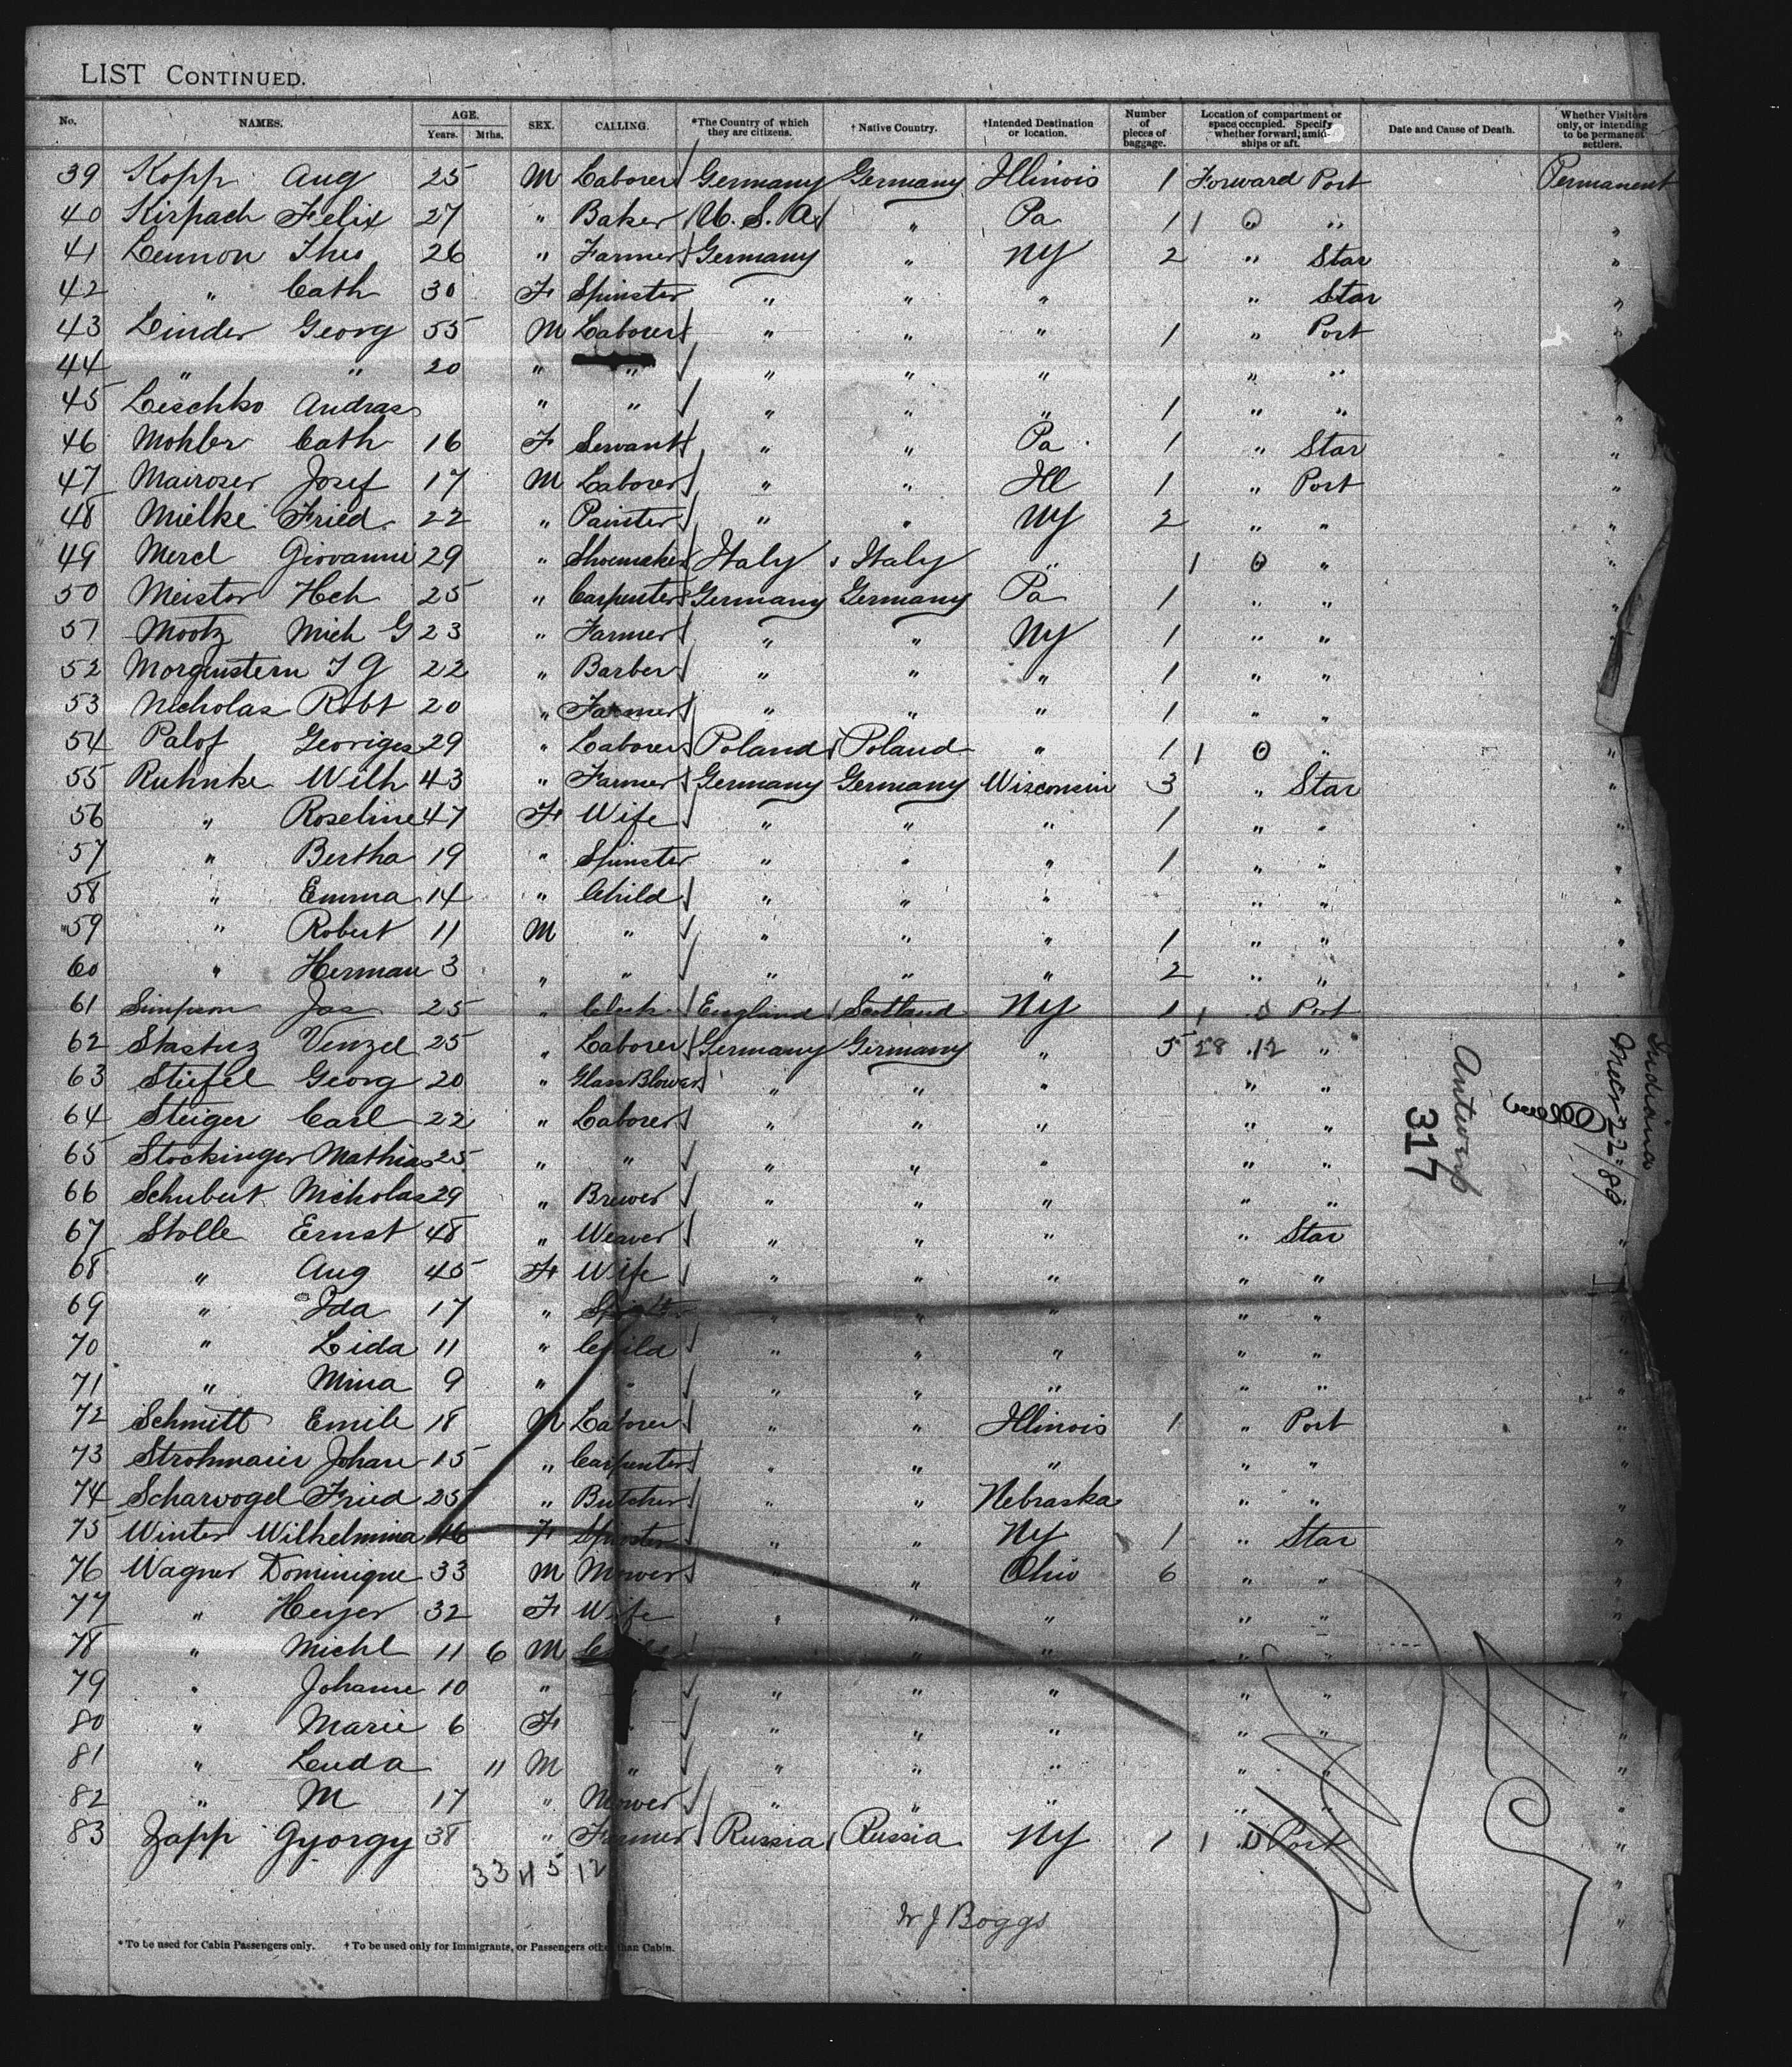 LIST CONTINUED.
No. NAMES. AGE. Years. Mths. SEX. CALLING. *The Country of which they are citizens. †Native Country. †Intended Destination or location. Number of pieces of baggage. Location of compartment or space occupied. Specify whether forward, amidships or aft. Date and Cause of Death. Whether Visitors only, or intending to be permanent settlers.
39 Kopp Aug 25 M Laborer Germany Germany Illinois 1 Forward Port Permanent
40 Kirpach Felix 27 " Baker U. S. A. " Pa 1 1 0 " "
41 Lennon Thes 26 " Farmer Germany " NY 2 " Star "
42 " Cath 30 F Spinster " " " " Star "
43 Linder Georg 55 M Laborer " " " 1 " Port "
44 " " 20 " " " " " " "
45 Leschko Andras " " " " " 1 " " "
46 Mohler Cath 16 F Servant " " Pa 1 " Star "
47 Mairoser Josef 17 M Laborer " " Ill 1 " Port "
48 Mielke Fried. 22 " Painter " " NY 2 " " "
49 Mercl Giovanni 29 " Shoemaker Italy Italy " 1 0 " "
50 Meistor Hch 25 " Carpenter Germany Germany Pa 1 " " "
51 Mootz Mich G 23 " Farmer " " NY 1 " " "
52 Morgenstern J G 22 " Barber " " " 1 " " "
53 Nicholas Robt 20 " Farmer " " " 1 " "
54 Palof Georiges 29 " Laborer Poland Poland " 1 1 0 " "
55 Ruhnke Wilh 43 " Farmer Germany Germany Wisconsin 3 " Star "
56 " Roseline 47 F Wife " " " 1 " " "
57 " Bertha 19 " Spinster " " " 1 " " "
58 " Emma 14 " Child " " " " " "
59 " Robert 11 M " " " " 1 " " "
60 " Herman 3 " " " " " 2 " " "
61 Simpson Jas 25 " Clerk England Scotland NY 1 1 0 Port
62 Stastuz Venzel 25 " Laborer Germany Germany " 5 28 12 "
63 Stiefel Georg 20 " Glass Blower " " " " "
64 Steiger Carl 22 " Laborer " " " " "
65 Stockinger Mathias 25 " " " " " " "
66 Schubert Nicholas 29 " Brewer " " " " "
67 Stolle Ernst 48 " Weaver " " " " Star "
68 " Aug 45 F Wife " " " " "
69 " Ida 17 " " " " " " "
70 " Lida 11 " Child " " " " " "
71 " Mina 9 " " " " " " " "
72 Schmitt Emile 18 M Laborer " " Illinois 1 " Port "
73 Strohmaier Johan 15 " Carpenter " " " " " "
74 Scharvogel Fried 25 " Butcher " " Nebraska " " "
75 Winter Wilhelmina 46 F Spinster " " NY 1 " Star "
76 Wagner Dominique 33 M Mower " " Ohio 6 " " "
77 " Heyer 32 F Wife " " " " " "
78 " Michl 11 6 M " " " "
79 " Johanne 10 " " " " " " "
80 " Marie 6 F " " " " " "
81 " Leuda 11 M " " " " " " "
82 " M 17 " Mower " " " " " "
83 Zapp Gyorgy 38 " Farmer Russia Russia NY 1 1 0 Port "
33 4 5 12
W J Boggs
*To be used for Cabin Passengers only. †To be used only for Immigrants, or Passengers other than Cabin.
Indiana
Antwerp
317